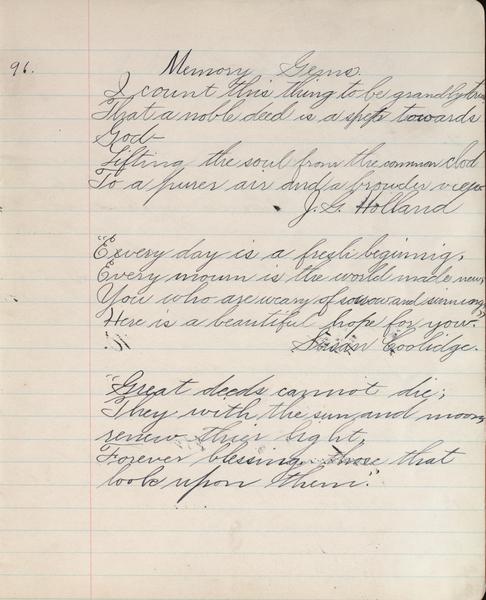 96.
Memory Gems.
I count this thing to be grandly true
That a noble deed is a step towards
God-
Lifting the soul from the common clod
To a purer air and a broader view
J. G. Holland
"Every day is a fresh beginnig,
Every mourn is the world made new,
You who are weary of sorrow and sinning,
Here is a beautiful hope for you.
Susan Coolidge.
"Great deeds cannot die;
They with the sun and moon,
renew thier light,
Forever blessing those that
look upon them."